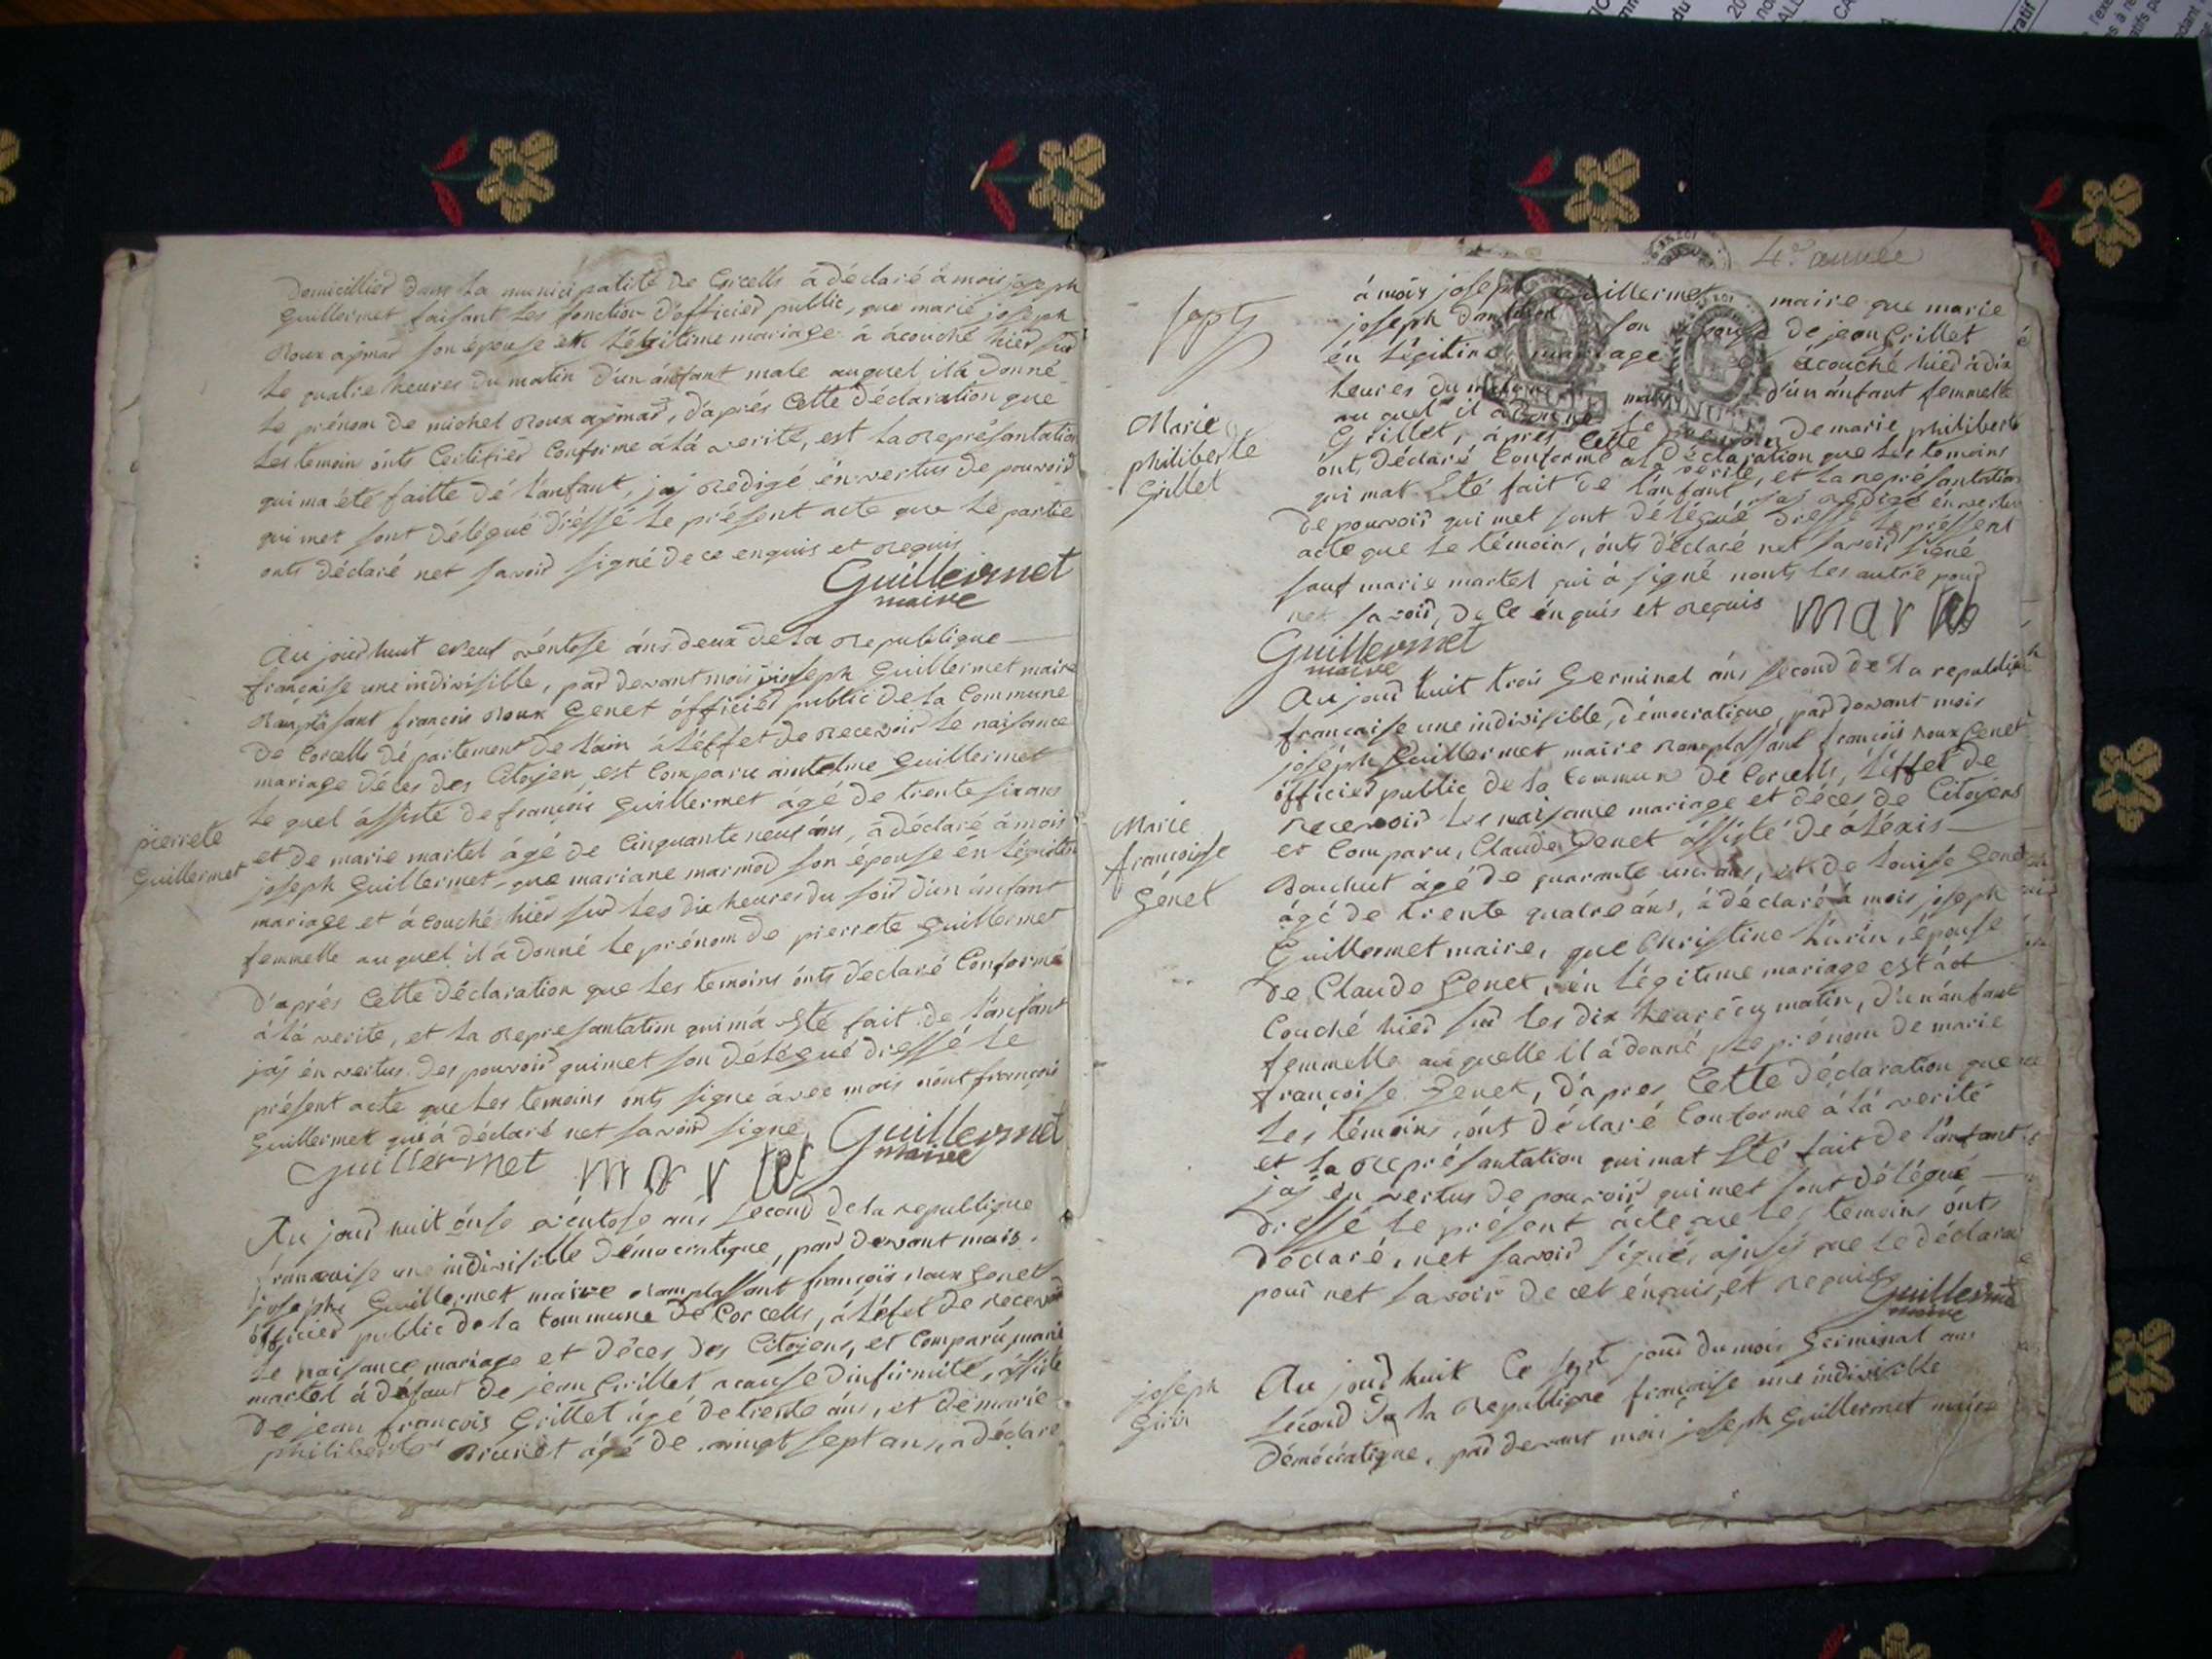 Domicillier dans la municipalité de Corcells à déclaré à mois joseph
Guillermet faisant les fonction d'officier public, que marie joseph
Roux ajmar son épouse en légitime mariage à acouché hier sur
le quatre heures du matin d'un ánfant male auquel il à donné
le prénom de michel Roux ajmar, d'aprés Cette déclaration que
les temoin önts Certifier Conforme à la verité, est la Représantation
qui ma été faitte dé l'anfant, jaj Redigé én vertus de pouvoir
qui met sont délégué dréssé le présent acte que le partie
onts déclaré net savoir signé de ce enquis et Requis
Guillermet
maire
Au jourdhuit neuf véntose áns deux de la Republique
française une indivisible, par devant mois joseph Guillermet maire
Ramplasant françois Roux Genet öfficier public de la Commune
De Corcells département de l'ain à l'éffet de Recevoir le naisance
mariage déces des Citojen, est Comparu Guillermet
le quel ássisté de françois Guillermet ágé de trente six ans
et de marie martel ágé de Cinquante neuf áns, à déclaré à mois
pierrete
Guillermet
joseph Guillermet que mariane marmod son épouse én légitime
mariage et à couché hier sur les dix heures du soir d'un ánfant
femmelle au quel il à donné le prénom de pierrete Guillermet
d'aprés Cette déclaration que les temoins önts déclaré Conforme
à la verite, et la Represantation qui má Eté fait de l'anfant
jáj én vertus des pouvoir qui met son délégué dréssé le
présent acte que les temoins önts signé ávec mois nont françois
Guillermet qui à déclaré net savoir signe
Guillermet martel Guillermet
maire
Au jour huit önse véntose ans second de la republique
française une indivisible démocratique, par devant mois
joseph Guillermet maire Ramplassant françois Roux Genet
öfficier public de la Commune de Corcells, à l'éfet de Recevoir
le naisance mariage et déces des Citojens, et Comparu marie
martel à défaut de jean Grillet a cause d'infirmité, ássisté
de jean françois Grillet ágé de trente áns, et de marie
philiberte Brunet ágé de vingt sept ans, a déclaré
4e année
à mois joseph Guillermet maire que marie
joseph son épouse de jean Grillet
én légitime mariage et acouché hier à dix
heures du matin d'un ánfant femmelle
au quel il à donné le prenom de marie philiberte
Marie
philiberte
Grillet
Grillet, áprés Cette déclaration que les temoins
önts déclaré Conforme à la verité, et la représantation
qui mat Eté fait de l'anfant, jaj redigé én vertu
de pouvoir qui met sont délégué dressé le pressent
acte que le témoins, önts déclaré net savoir signé
sauf marie martel qui à signé nonts les autre pour
net savoir, de Ce énquis et Requis martel
Guillermet
maire
Au jour huit trois Germinal áns second de la republique
française une indivisible, démocratique par devant mois
joséph Guillermet maire Ramplassant françois Roux Genet
öfficier public de la Commune de Corcells, l'éffet de
recevoir le naisance mariage et déces de Citojens
Marie
françoise
Génet
et Comparu, Claude Genet ássisté de áléxis
Bouchut ágé de quarante un ans, et de Louise Genet
ágé de trente quatre áns, à déclaré à mois joseph
Guillermet maire, que Christine Lurin, épouse
de Claude Genet, én légitime mariage est ác
Couché hier sur les dix heure du matin, d'un ánfant
femmelle au quelle il à donné, le prénom de marie
françoise Genet, d'apres Cette déclaration que
les témoins önts déclaré Conforme à la verité
et la Représantation qui mat Eté fait de l'anfant
jaj én vertus de pouvoir qui met sont délégué
dressé le présent ácte que les temoins önts
déclaré, net savoir signé, ajnsij que le déclarant
pour net savoir de cet énquis, et Requis
Guillermet
maire
joseph
Girin
Au jour huit Ce sept jour du mois Germinal ans
sécond de la République française une indivisible
démócratique, par devant moi joseph Guillermet maire